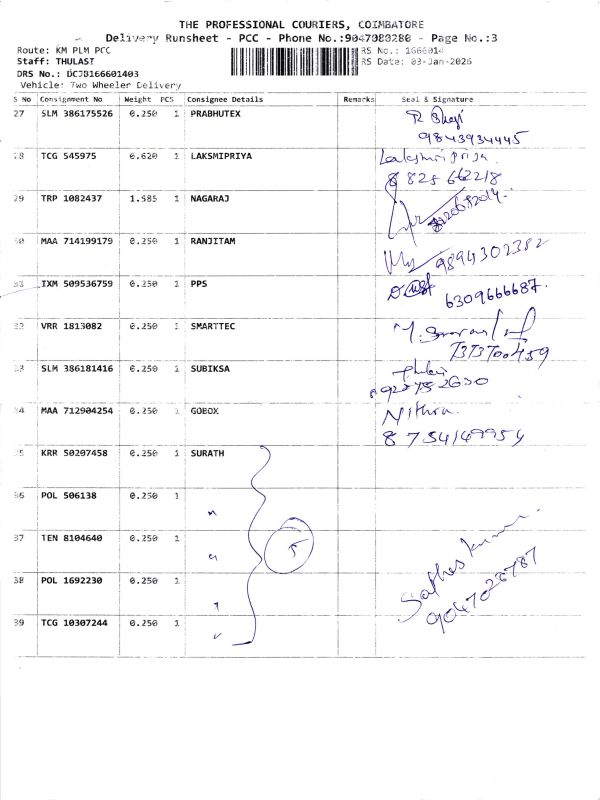 THE PROFESSIONAL COURIERS, COIMBATORE
Delivery Runsheet - PCC - Phone No.:9047080280 - Page No.:3
Route: KM PLM PCC
RS No.: 1666014
Staff: THULASI
RS Date: 03-Jan-2026
DRS No.: DCJB166601403
Vehicle: Two Wheeler Delivery
S No Consignment No Weight PCS Consignee Details Remarks Seal & Signature
27 SLM 386175526 0.250 1 PRABHUTEX
9843934445
28 TCG 545975 0.620 1 LAKSMIPRIYA Lakshmi priya
29 TRP 1082437 1.585 1 NAGARAJ
30 MAA 714199179 0.250 1 RANJITAM
9894302382
31 IXM 509536759 0.250 1 PPS
6309666687.
32 VRR 1813082 0.250 1 SMARTTEC
33 SLM 386181416 0.250 1 SUBIKSA
34 MAA 712904254 0.250 1 GOBOX Nithra
35 KRR 50207458 0.250 1 SURATH
36 POL 506138 0.250 1
37 TEN 8104640 0.250 1 5
38 POL 1692230 0.250 1
39 TCG 10307244 0.250 1
Sathes kumar
9047028787